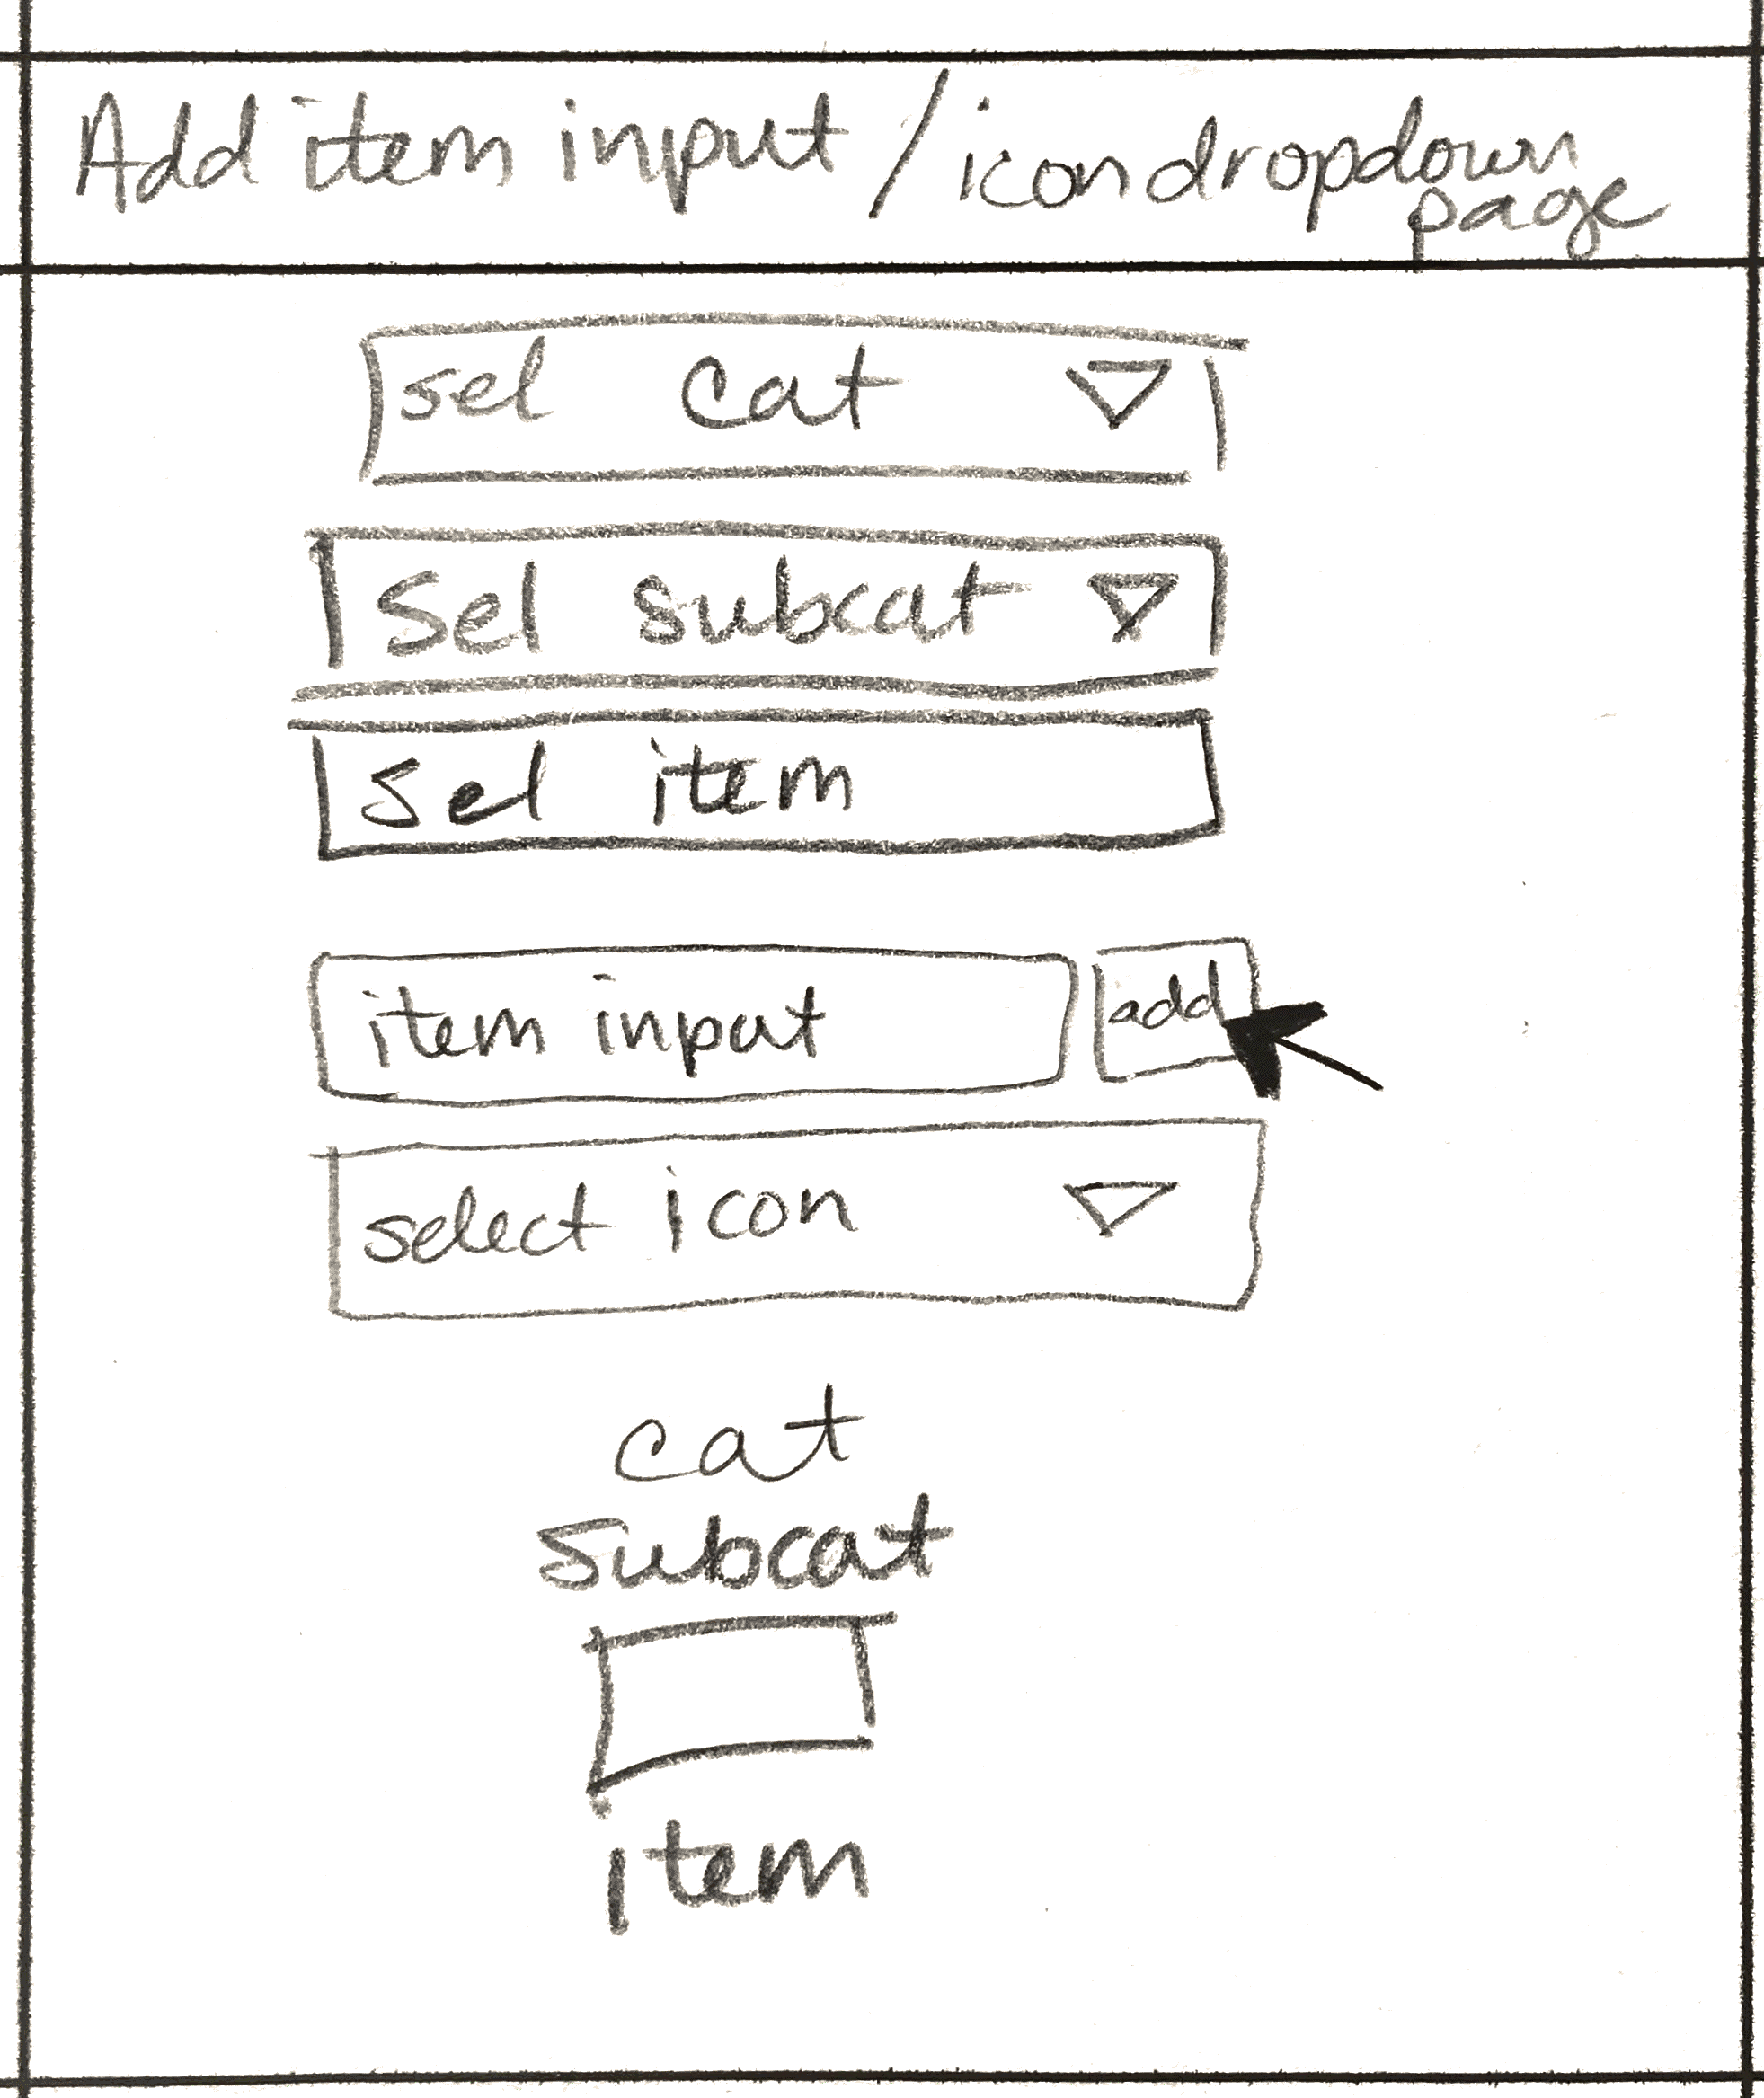 Add item input / icon dropdown
page
sel cat
Sel subcat
Sel item
item input
add
select icon
cat
Subcat
item